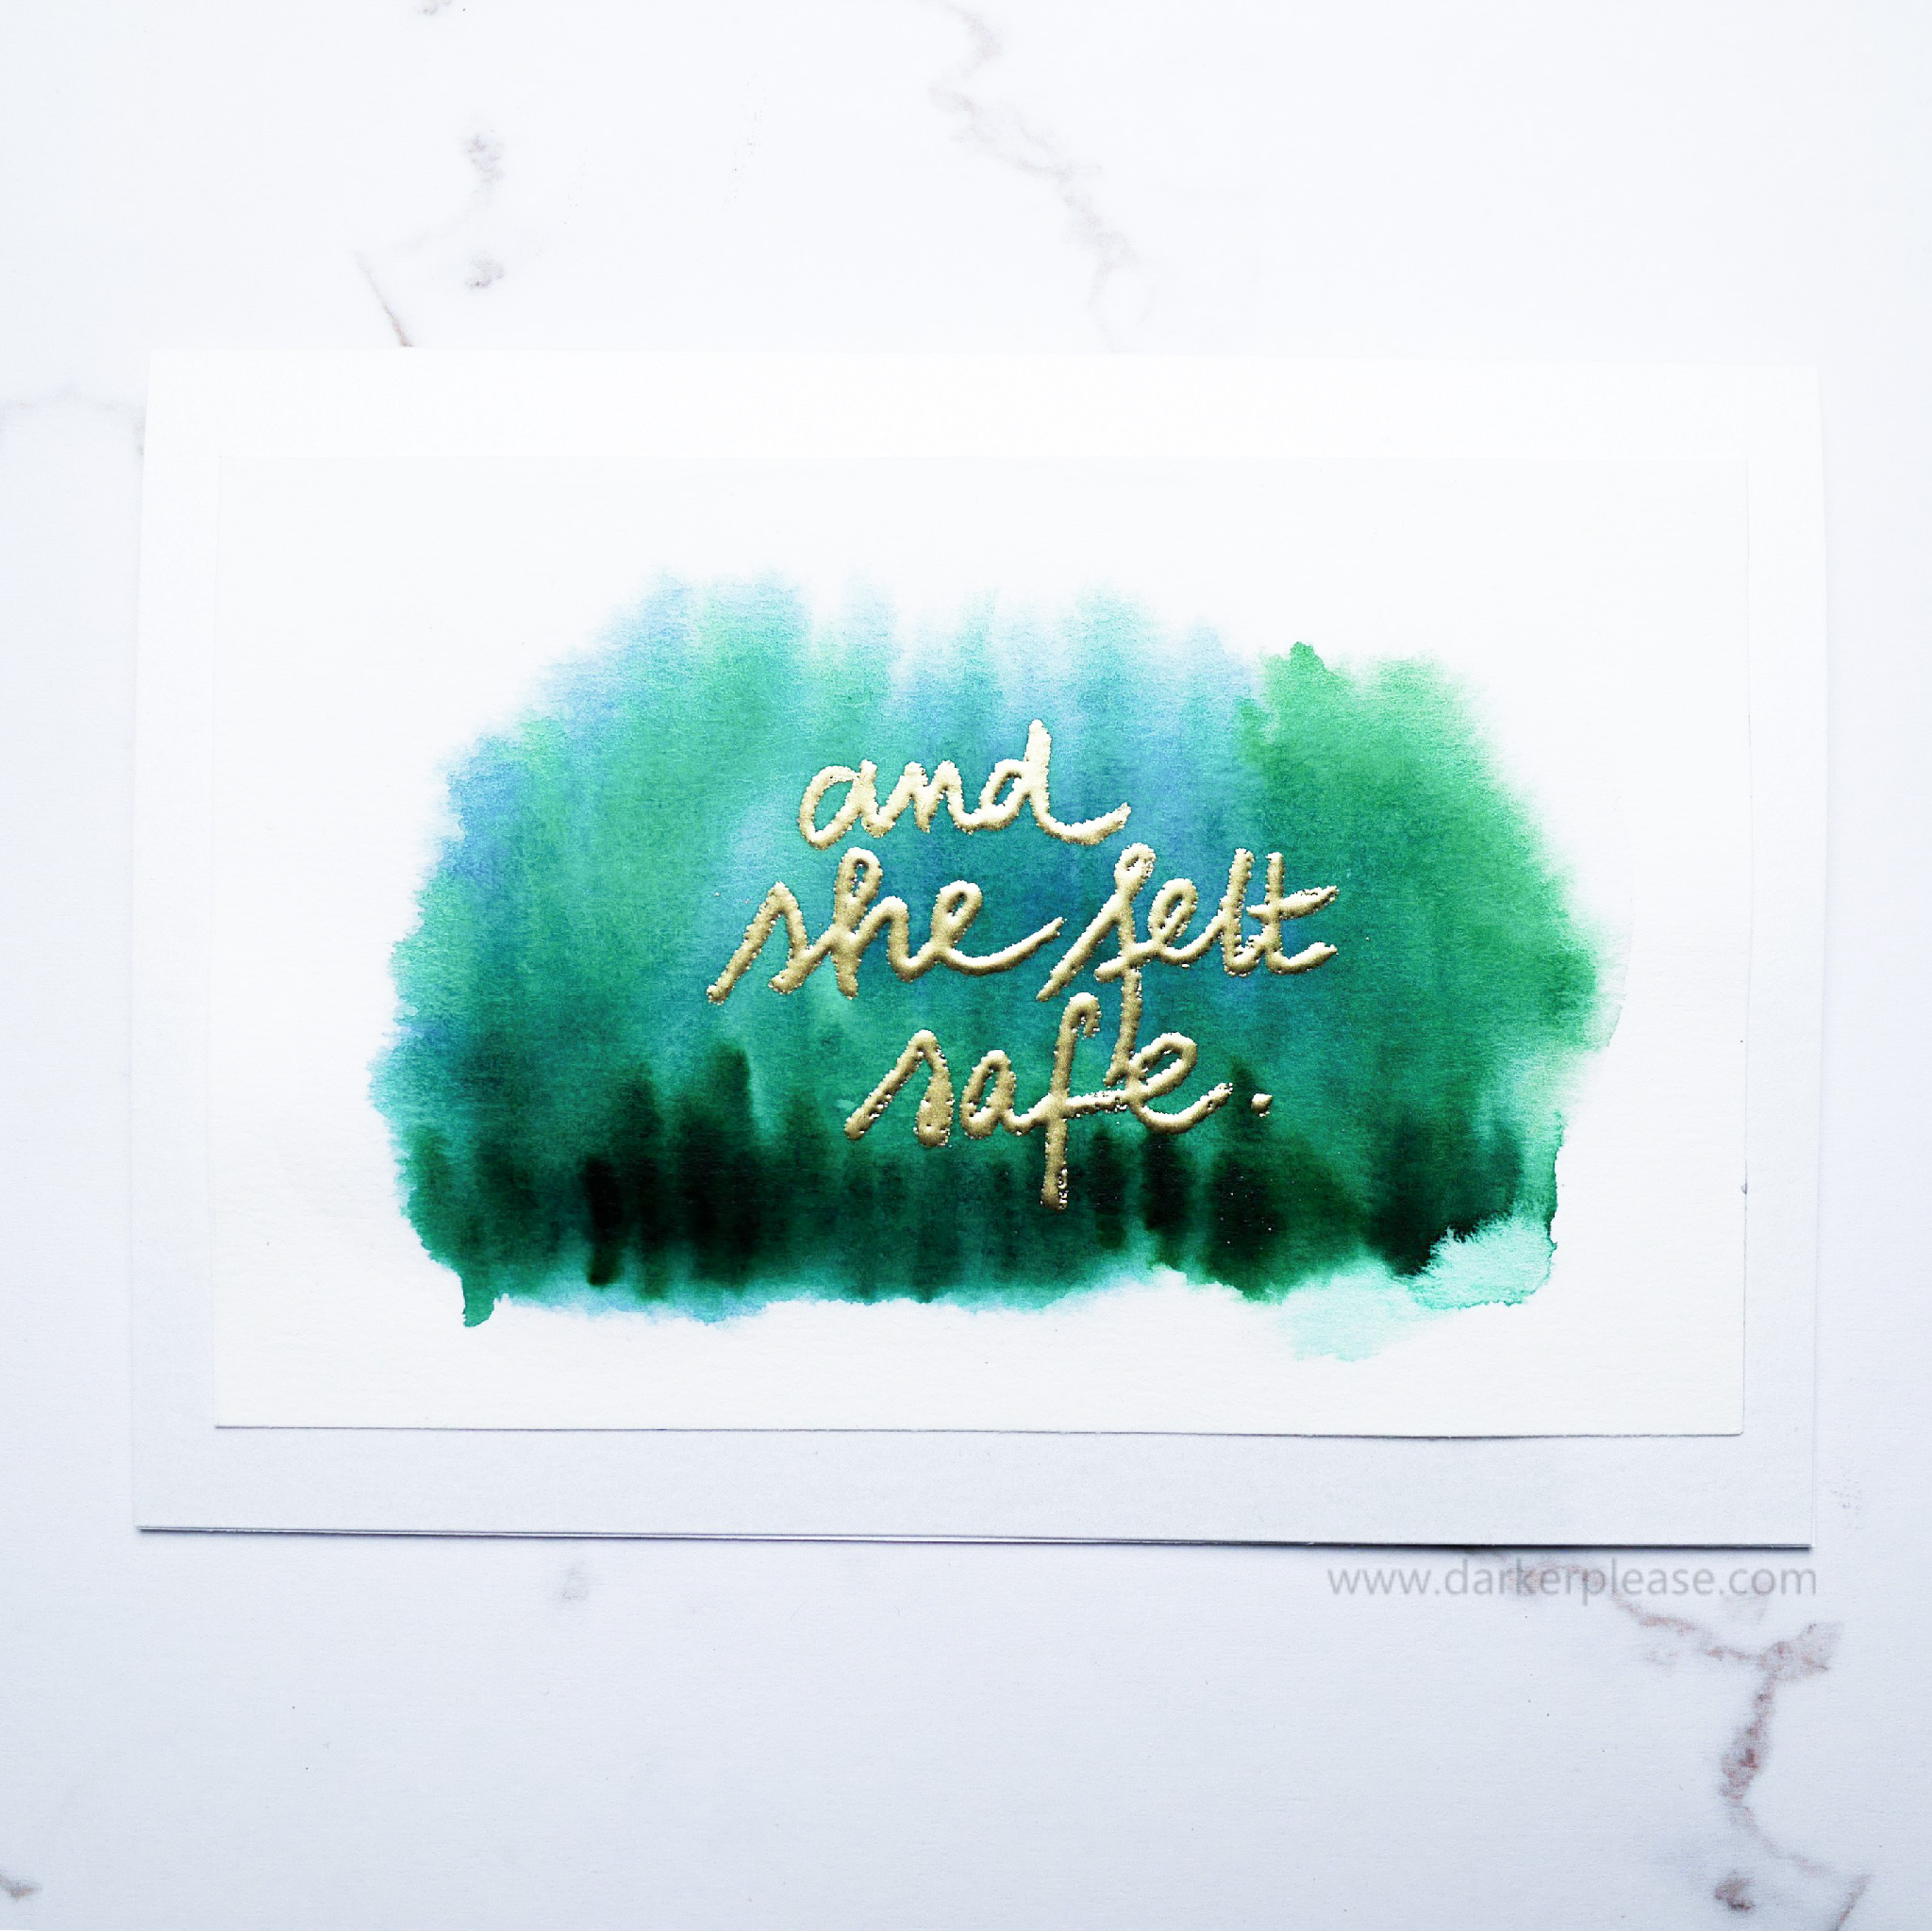 and
she felt
safe.
www.darkerplease.com